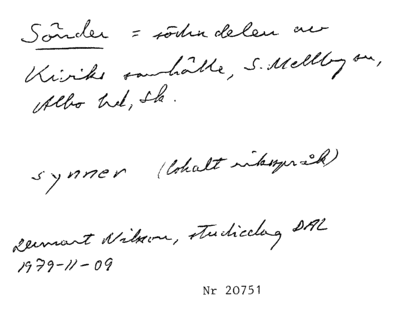 Sönder = södra delen av
Kiviks samhälle, S. Mellby sn,
Albo hd, Sk.
synner (lokalt riksspråk)
Lennart Nilsson, studiedag DAL
1979-11-09
Nr 20751